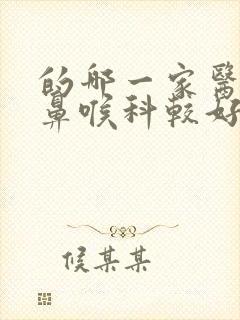 的那一家醫
鼻喉科較好
候某某